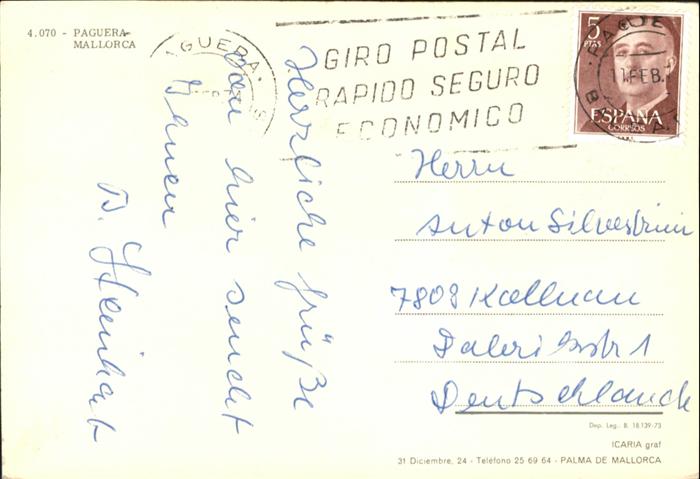 4.070 - PAGUERA
MALLORCA
PAGUERA
GIRO POSTAL
RAPIDO SEGURO
ECONOMICO
5
PTAS
ESPAÑA
CORREOS
11 FEB.
Herzliche Grüße
von hier sendet
Ihnen
B.
Herrn
Anton Silvestrini
7808 Kollnau
Deutschland
Dep. Leg. B. 18.139-73
ICARIA graf
31 Diciembre, 24 - Teléfono 25 69 64 - PALMA DE MALLORCA